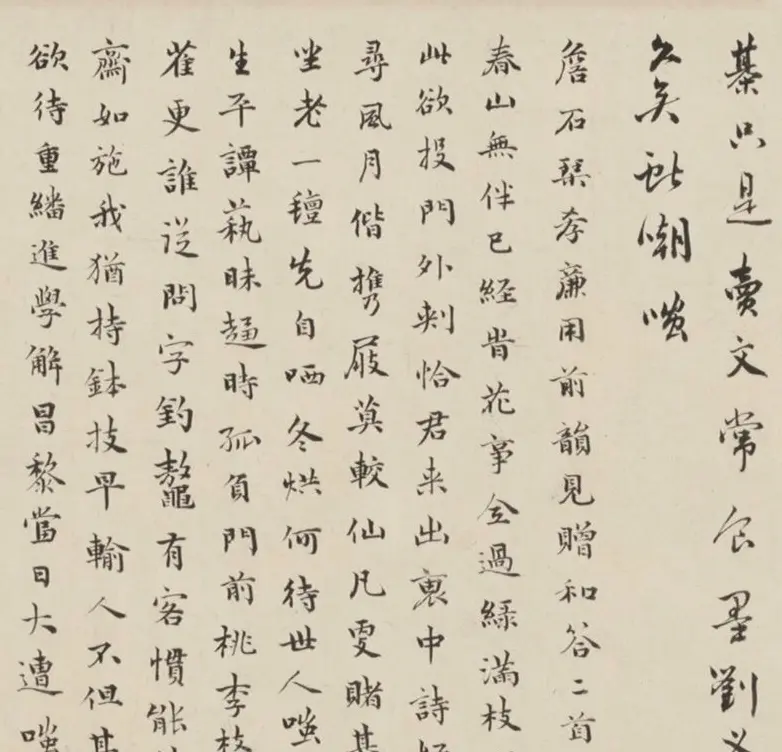 棊只是賣文常食墨劉
久矣嘲嗤
詹石琹孝廉用前韻見贈和答二首
春山無伴已經旹花事全過綠滿枝
此欲投門外刺恰君来出褎中詩
尋風月偕携屐莫較仙凡要賭棊
坐老一氊先自哂冬烘何待世人嗤
生平譚蓺昧趨時孤負門前桃李枝
更誰從問字釣鼇有客慣能
齋如施我猶持鉢技早輸人不但棊
欲待重繙進學解昌黎當日大遭嗤